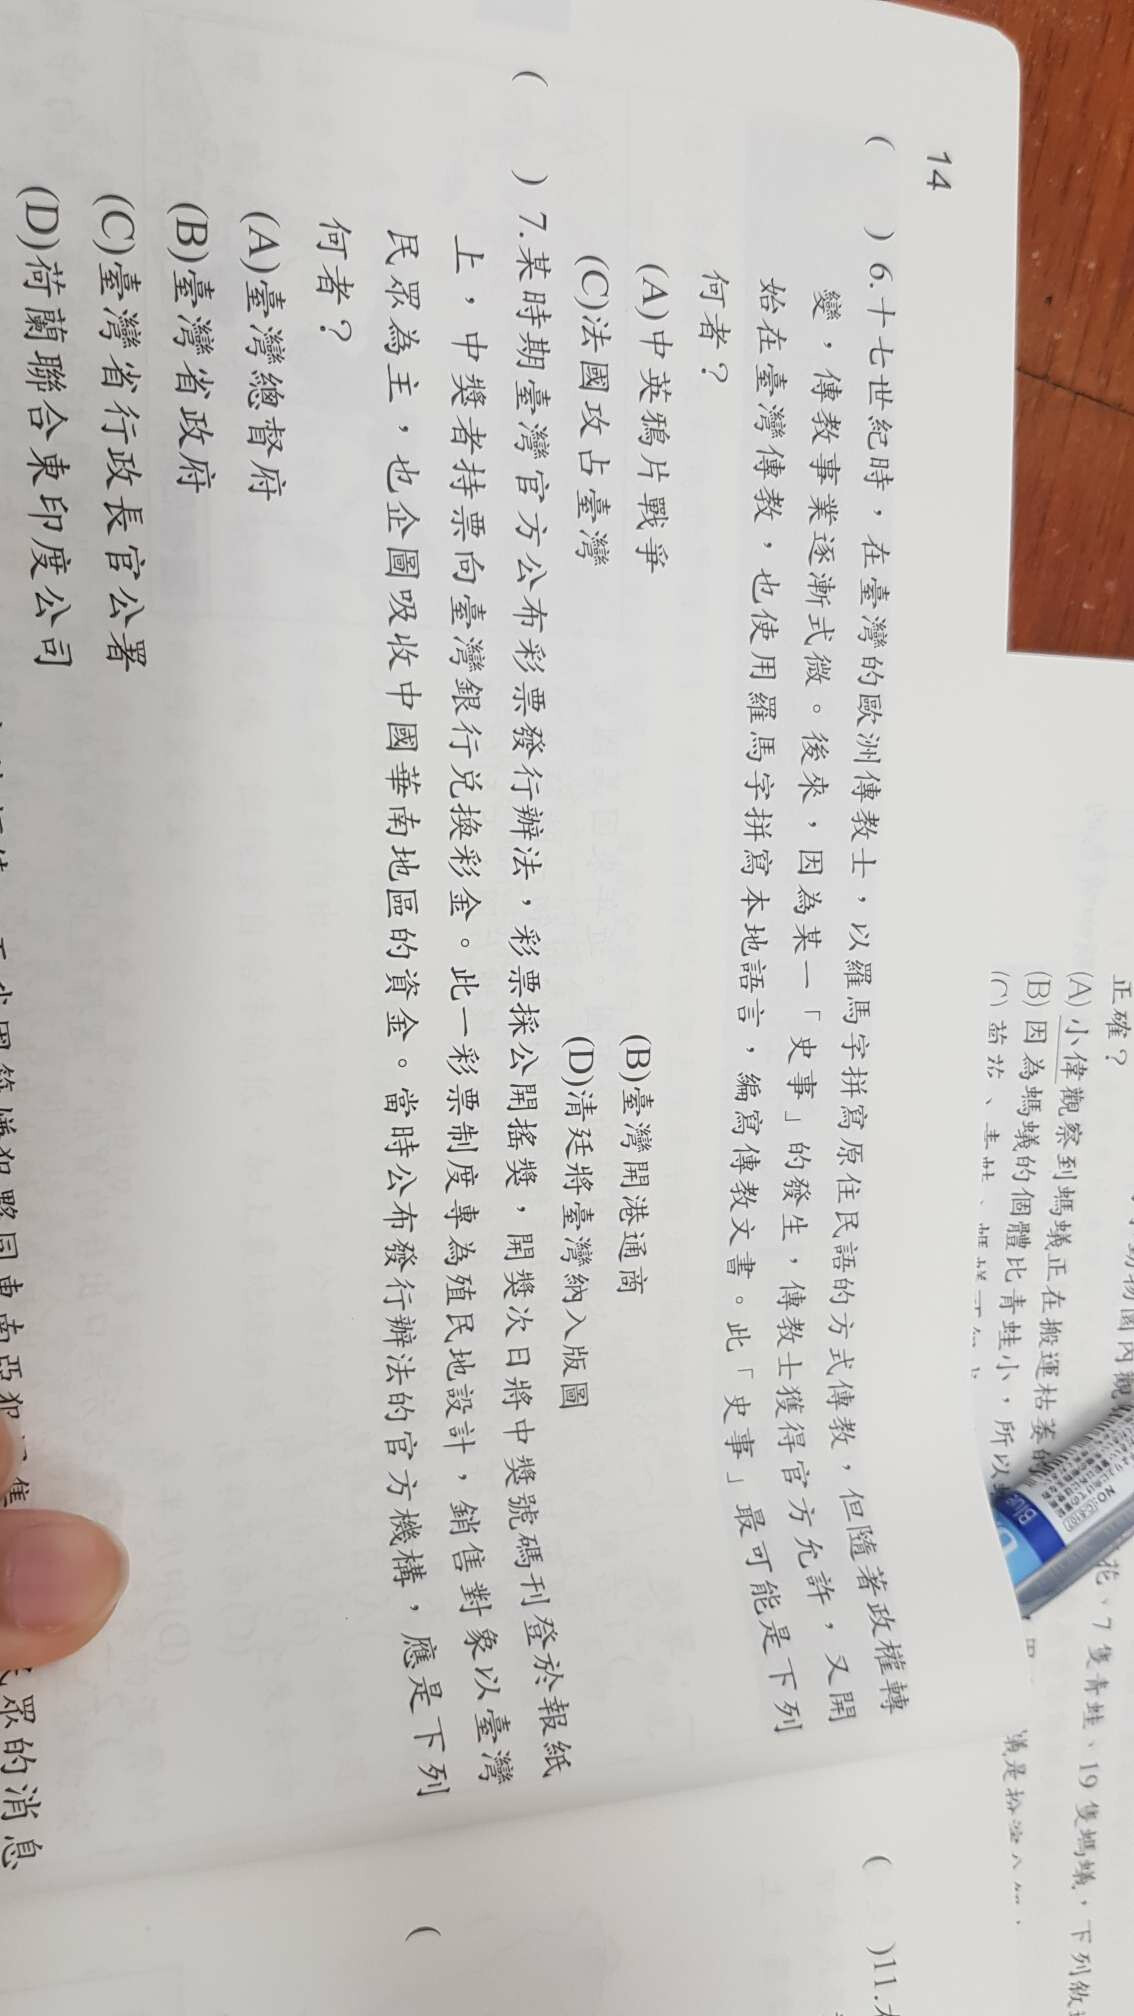 14
( )6.十七世紀時，在臺灣的歐洲傳教士，以羅馬字拼寫原住民語的方式傳教，但隨著政權轉
變，傳教事業逐漸式微。後來，因為某一「史事」的發生，傳教士獲得官方允許，又開
始在臺灣傳教，也使用羅馬字拼寫本地語言，編寫傳教文書。此「史事」最可能是下列
何者？
(A)中英鴉片戰爭 (B)臺灣開港通商
(C)法國攻占臺灣 (D)清廷將臺灣納入版圖
( )7.某時期臺灣官方公布彩票發行辦法，彩票採公開搖獎，開獎次日將中獎號碼刊登於報紙
上，中獎者持票向臺灣銀行兌換彩金。此一彩票制度專為殖民地設計，銷售對象以臺灣
民眾為主，也企圖吸收中國華南地區的資金。當時公布發行辦法的官方機構，應是下列
何者？
(A)臺灣總督府
(B)臺灣省政府
(C)臺灣省行政長官公署
(D)荷蘭聯合東印度公司
眾的消息
( )11.
(
正確？
(A)小偉觀察到螞蟻正在搬運枯萎的
(B)因為螞蟻的個體比青蛙小，所以
花、7隻青蛙、19隻螞蟻，下列敘
Blue